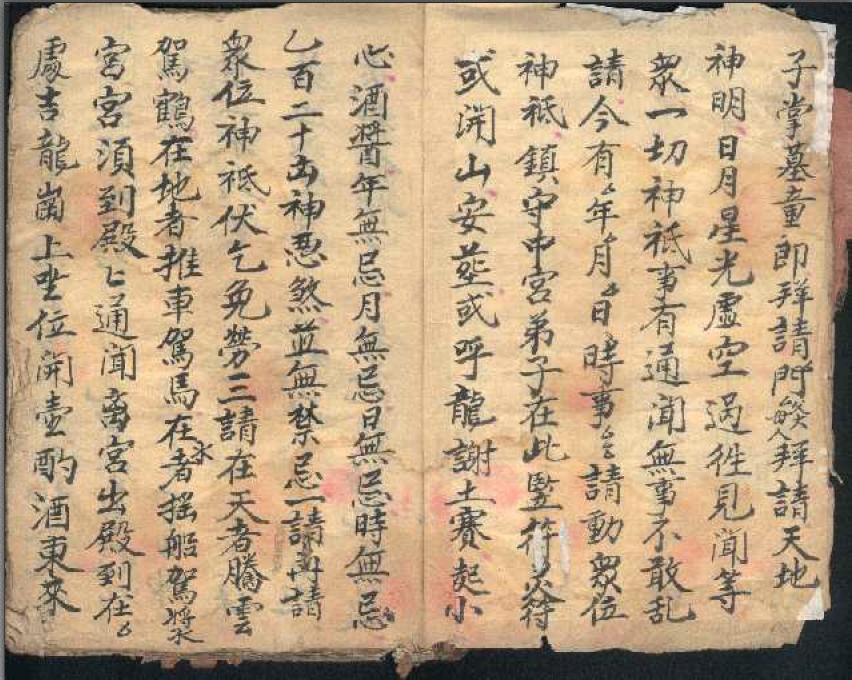 子掌墓童即拜請門拜請天地
神明日月星光虛空過徃見聞等
衆一切神祇事有通聞無事不敢乱
請今有年月日時事請動衆位
神祇鎮守中宮弟子在此竪符
或開山安塟或呼龍謝土賽起小
心酒醬年無忌月無忌日無忌時無忌
乙百二十神惡煞並無禁忌一請再請
衆位神祇伏乞免勞三請在天者騰雲
駕鶴在地者推車駕馬在水者摇船駕槳
宮宮須到殿殿通聞离宮出殿到在
處吉龍崗上坐位開壺酌酒東來